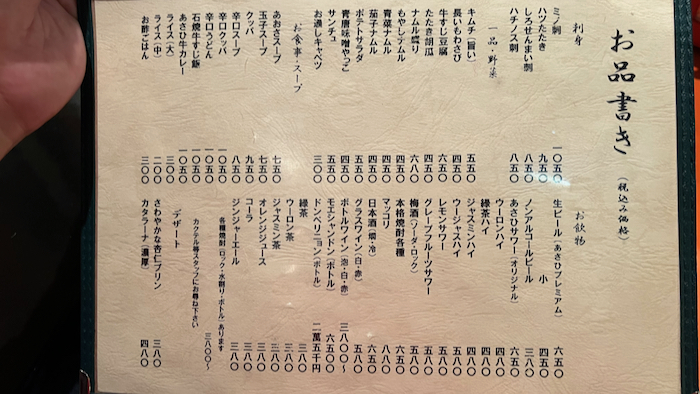 お品書き（税込み価格）
刺身
ミノ刺 一〇五〇
ハツたたき 九五〇
しろせんまい刺 八五〇
ハチノス刺 八五〇
一品・野菜
キムチ（旨い） 五五〇
長いもわさび 四五〇
牛すじ豆腐 六五〇
たたき胡瓜 四五〇
ナムル盛り 六八〇
もやしナムル 四五〇
青菜ナムル 四五〇
茄子ナムル 四五〇
ポテトサラダ 四五〇
青唐味噌やっこ 四五〇
サンチュ 五五〇
お通しキャベツ 三〇〇
お食事・スープ
あおさスープ 七五〇
玉子スープ 七五〇
クッパ 九五〇
辛口スープ 八五〇
辛口クッパ 一〇五〇
辛口うどん 一〇五〇
石焼牛すじ飯 一〇五〇
あさひ牛カレー 一〇五〇
ライス（大） 三〇〇
ライス（中） 二〇〇
お酢ごはん 三〇〇
お飲物
生ビール（あさひプレミアム） 六五〇
小 四五〇
ノンアルコールビール 三八〇
あさひサワー（オリジナル） 六五〇
ウーロンハイ 四八〇
緑茶ハイ 四八〇
ジャスミンハイ 四八〇
ウージャスハイ 五八〇
レモンサワー 五八〇
グレープフルーツサワー 五八〇
梅酒（ソーダ・ロック） 五八〇
本格焼酎各種
マッコリ 八八〇
日本酒（燗・冷） 六五〇
グラスワイン（白・赤） 五八〇
ボトルワイン（泡・白・赤） 三八〇〇〜
モエシャンドン（ボトル） 六五〇〇
ドンペリニョン（ボトル） 二萬五千円
緑茶 三八〇
ウーロン茶 二八〇
ジャスミン茶 二八〇
オレンジジュース 三八〇
コーラ 三八〇
ジンジャーエール 三八〇
各種焼酎（ロック・水割り・ボトル）あります 三八〇〇〜
カクテル等スタッフにお尋ね下さい
デザート
さわやかな杏仁プリン 三八〇
カタラーナ（濃厚） 四八〇